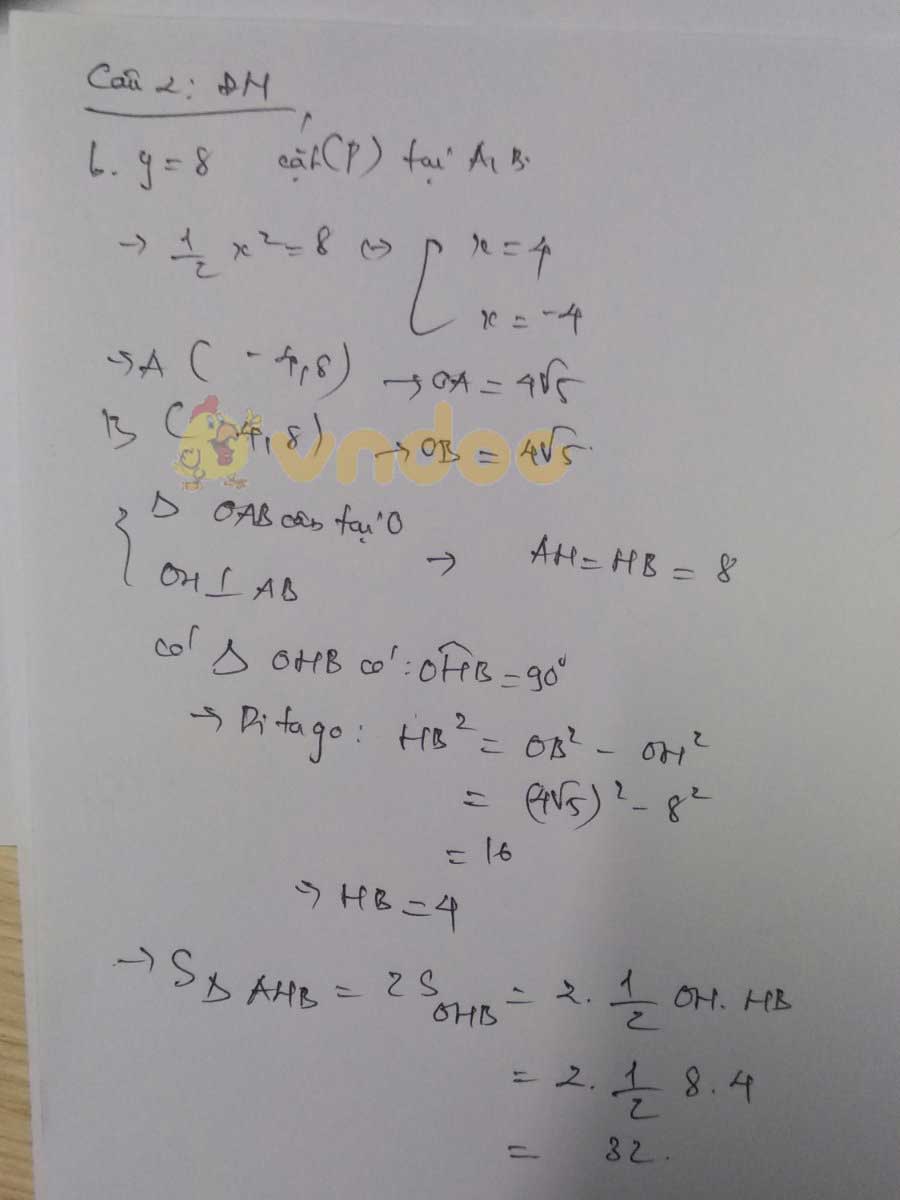 Câu 2: ĐN
b. y = 8 cắt (P) tại A, B.
→ 1/2 x² = 8 ⇔ [ x = 4
x = -4
→ A ( - 4, 8) → OA = 4√5
B ( 4, 8) → OB = 4√5.
vndoc
{ Δ OAB cân tại O
OH ⊥ AB → AH = HB = 8
có Δ OHB có: OHB = 90°
→ Pitago: HB² = OB² - OH²
= (4√5)² - 8²
= 16
→ HB = 4
→ S Δ AHB = 2 S OHB = 2. 1/2 OH. HB
= 2. 1/2 8. 4
= 32.